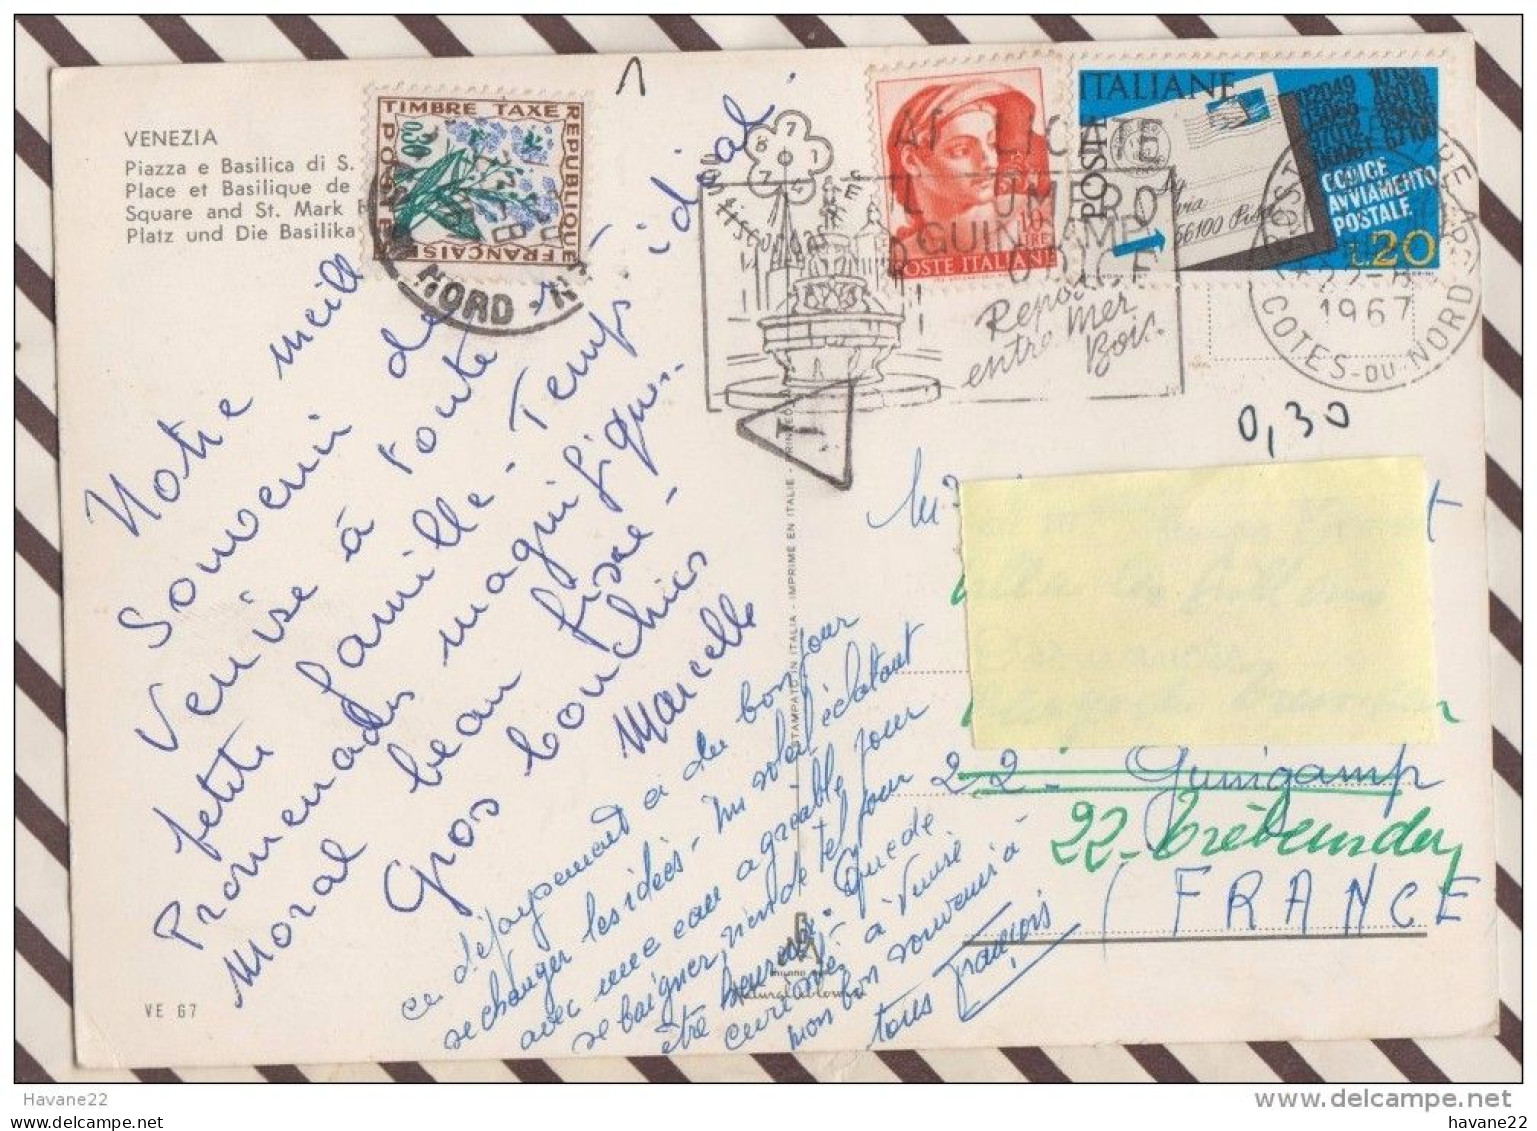 VENEZIA
Piazza e Basilica di S.
Place et Basilique de
Square and St. Mark
Platz und Die Basilika
TIMBRE TAXE
REPUBLIQUE
FRANÇAISE
POSTES
0,20
NORD
Notre meill
Souvenir de
Venise à toute
petite famille - Temps idéal.
Promenades magnifiques -
Moral beau fixe -
Gros bouchics
Marcelle
ce dépaysement a du bon pour
se changer les idées - Un soleil éclatant
avec une eau agréable pour
se baigner, rien de tel pour
être heureux. Que de
curiosités à Venise
mon bon souvenir à
tous François
STAMPATO IN ITALIA - IMPRIME EN ITALIE - PRINTED
milano
VE 67
10
LIRE
POSTE ITALIANE
POSTE ITALIANE
56100 Pisa
CODICE
AVVIAMENTO
POSTALE
L.20
GUINGAMP
Repos
entre Mer
Bois.
T
1967
COTES-DU-NORD
0,30
22 - Guingamp
22 - Trébeurden
(FRANCE
Havane22
www.delcampe.net
havane22